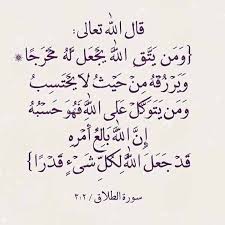 قال الله تعالى:
{وَمَن يَتَّقِ اللَّهَ يَجْعَل لَّهُ مَخْرَجًا *
وَيَرْزُقْهُ مِنْ حَيْثُ لَا يَحْتَسِبُ
وَمَن يَتَوَكَّلْ عَلَى اللَّهِ فَهُوَ حَسْبُهُ
إِنَّ اللَّهَ بَالِغُ أَمْرِهِ
قَدْ جَعَلَ اللَّهُ لِكُلِّ شَيْءٍ قَدْرًا}
سورة الطلاق / ٣:٢